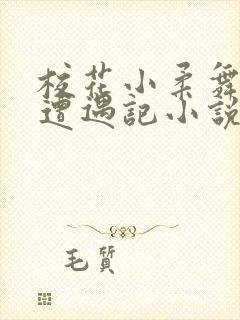 校花小柔舞
遭遇記小説
毛質